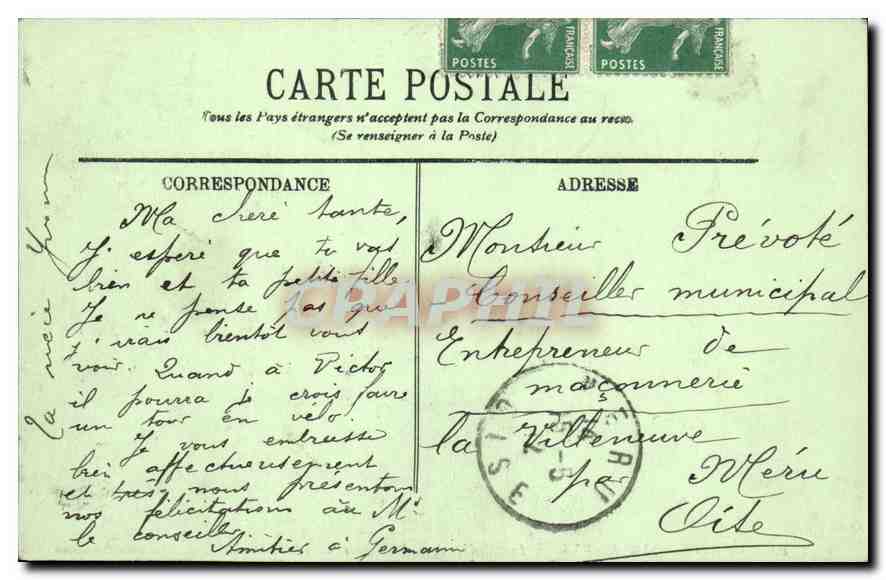 POSTES
FRANÇAISE
POSTES
FRANÇAISE
CARTE POSTALE
Tous les Pays étrangers n'acceptent pas la Correspondance au recto.
(Se renseigner à la Poste)
CORRESPONDANCE
Ma cheré tante,
J' esperé que tu vas
bien et ta petite fille
Je ne pense pas que
j'irais bientôt vous
voir. Quand à Victor
il pourra je crois faire
un tour en vélo.
Je vous embrasse
bien affectueusement
et nous présentons
nos félicitations au Mr
le conseiller
Amitier à Germann
Ta niéce
ADRESSE
Monsieur Prévoté
Conseiller municipal
Entrepreneur de
maçonnerie
la Villeneuve
par Méru
Oise
MERU
OISE
CPAPHIL